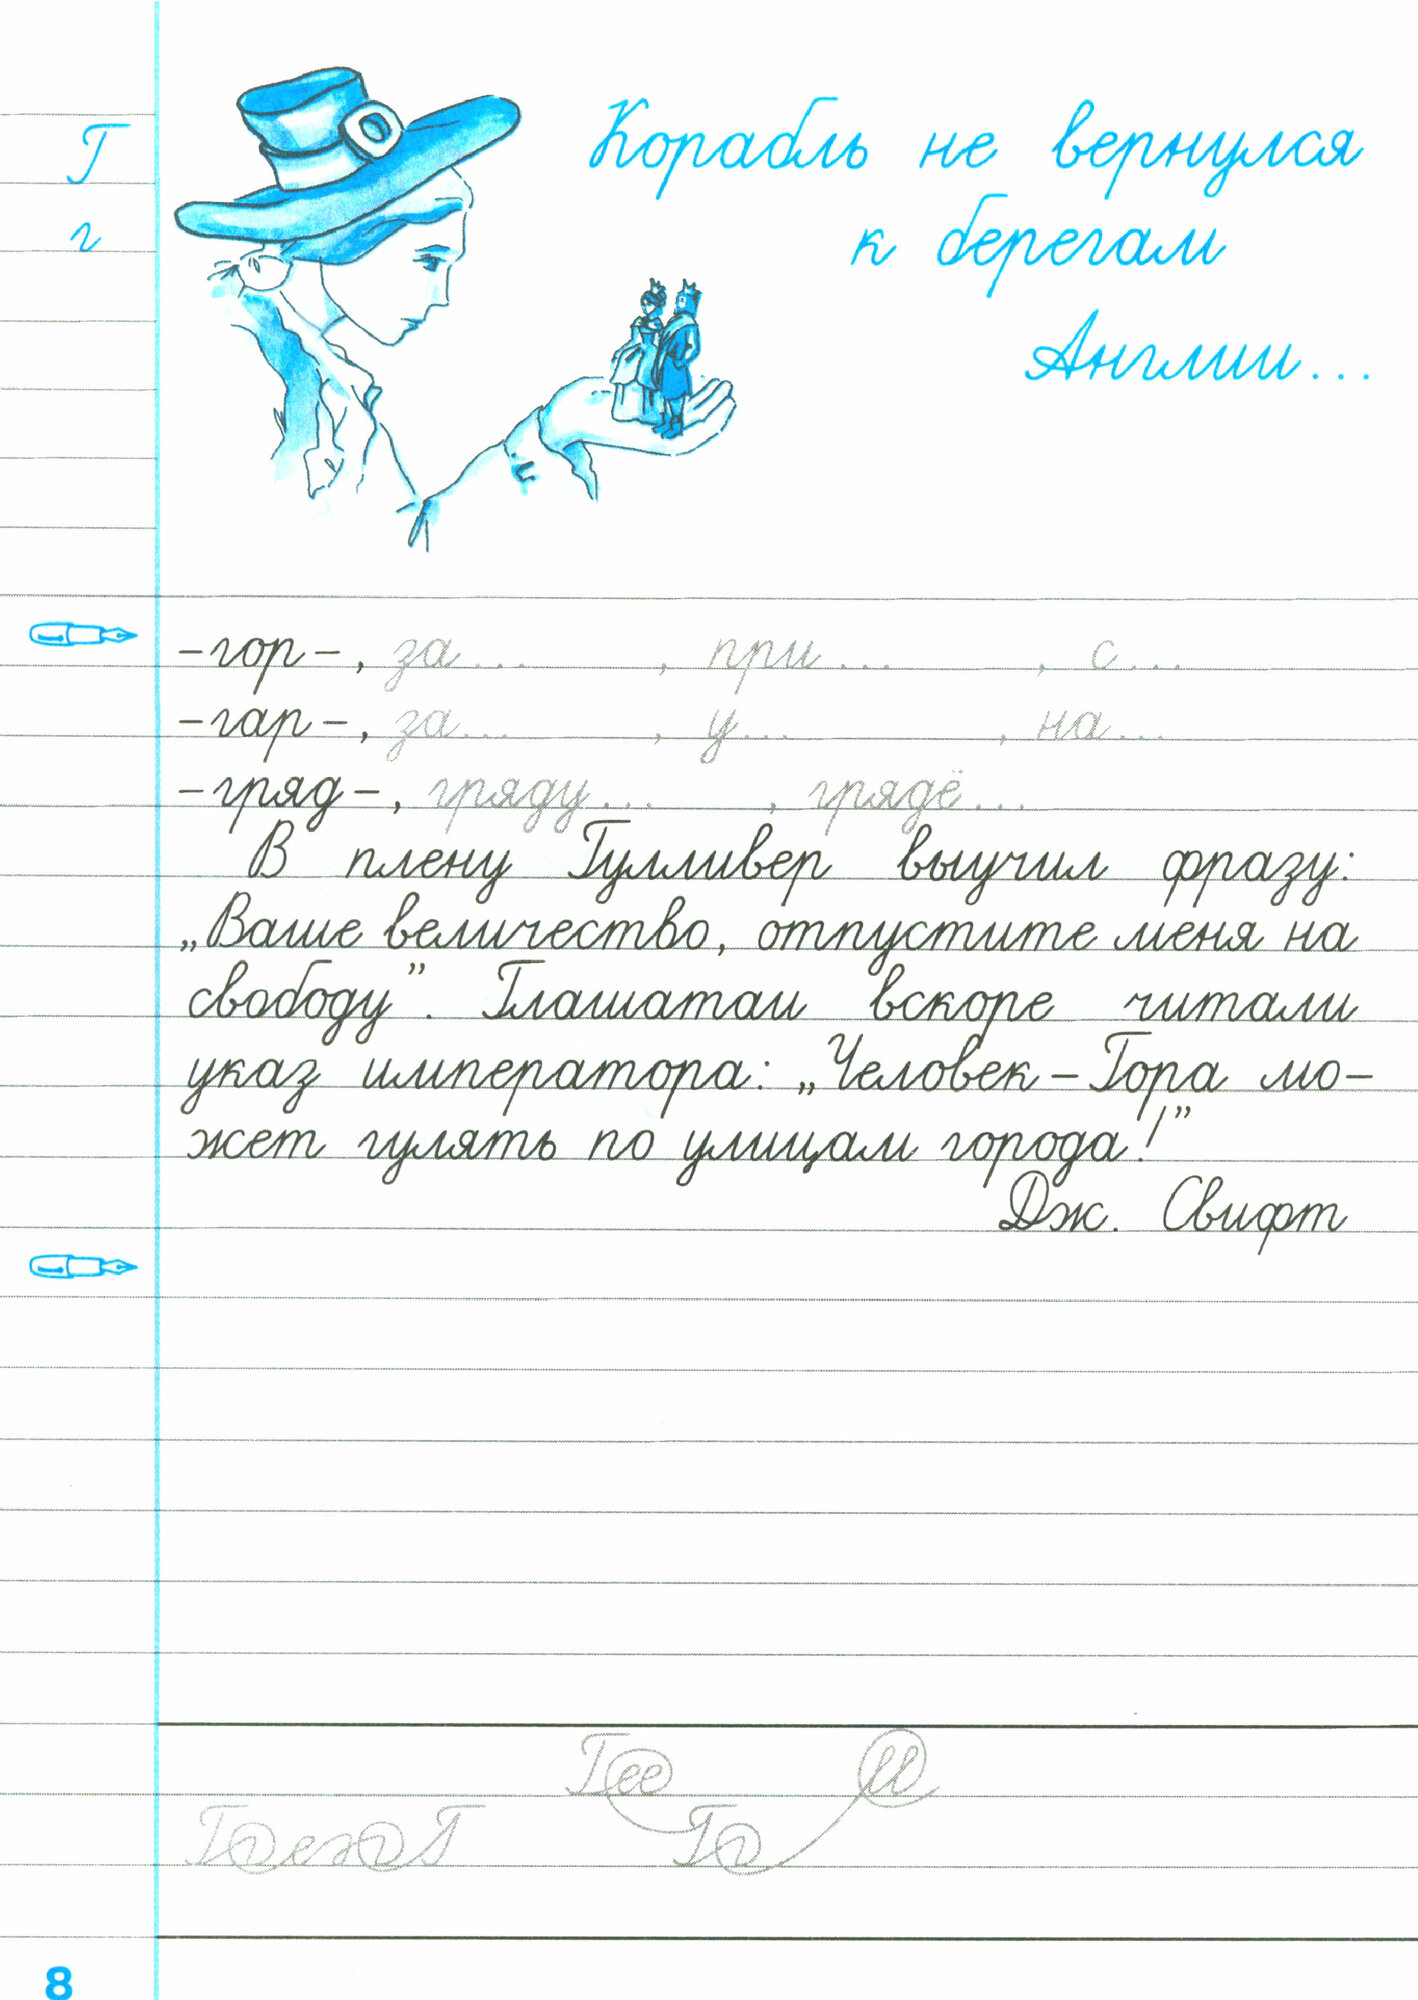 Г
г
Корабль не вернулся
к берегам
Англии...
-гор-, за... , при... , с...
-гар-, за... , у... , на...
-гряд-, гряду... , грядё...
В плену Гулливер выучил фразу:
„Ваше величество, отпустите меня на
свободу”. Глашатаи вскоре читали
указ императора: „Человек-Гора мо-
жет гулять по улицам города!”
Дж. Свифт
8